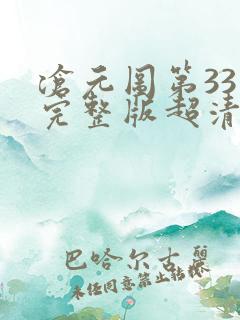 滄元圖第33
完整版超清
巴哈尔古丽
未经同意禁止转载